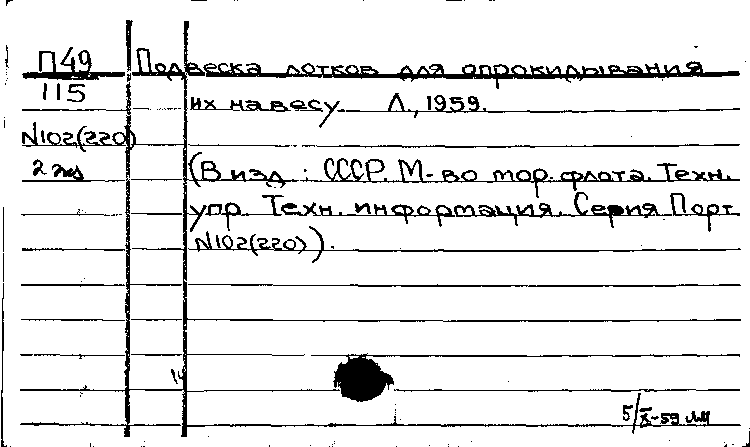 П49 Подвеска лотков для опрокидывания
115 их на весу. Л., 1959.
N102(220)
2 экз (В изд.: СССР. М-во мор. флота. Техн.
упр. Техн. информация. Серия Порт
N102(220)).
14
5/X-59